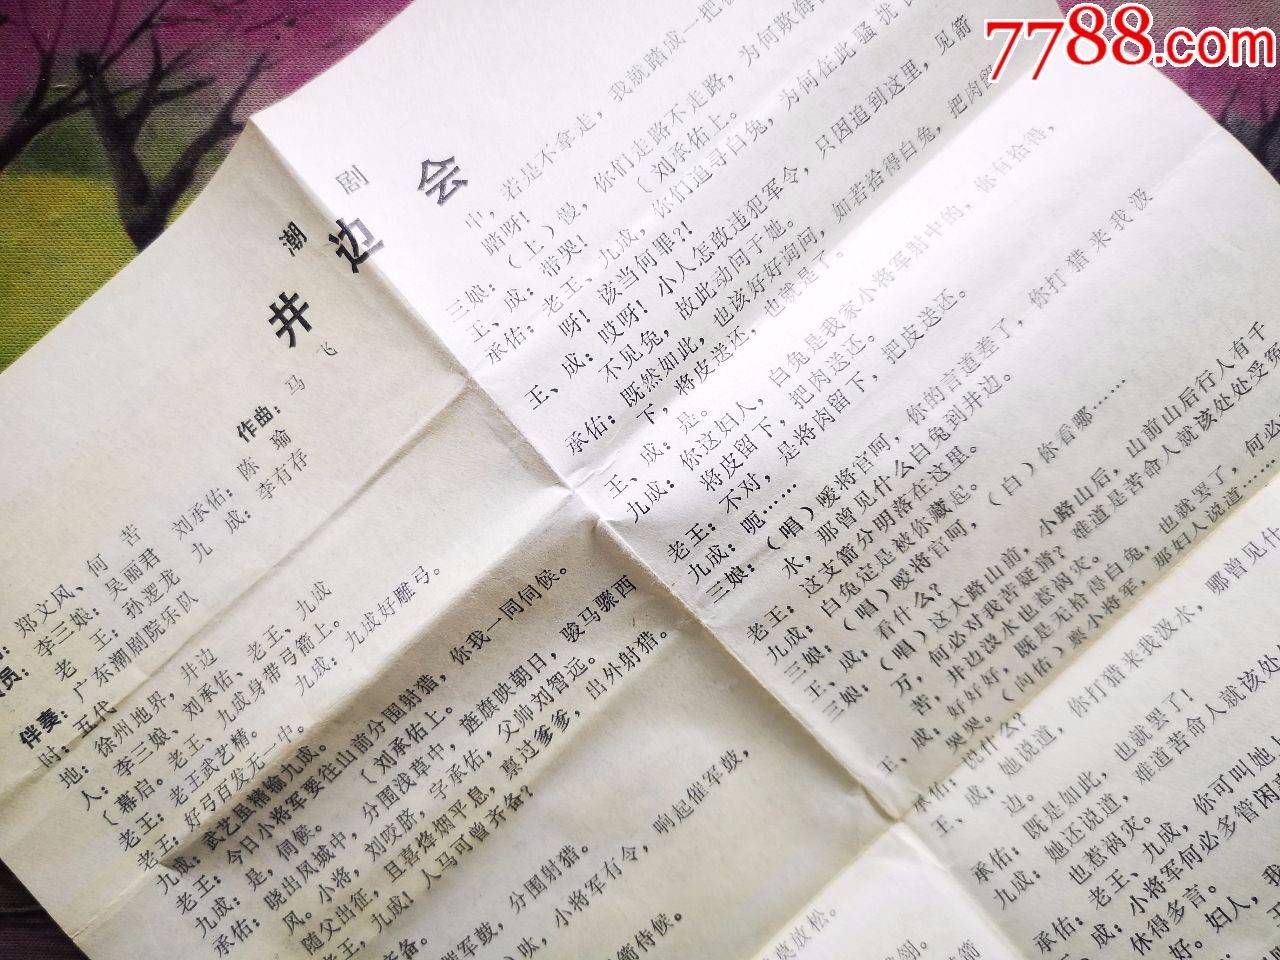 7788.com
潮剧
井边会
作曲：马飞
郑文风、何苦
员：李三娘：吴丽君 刘承佑：陈瑜
老王：孙逻龙 九成：李有存
伴奏：广东潮剧院乐队
时：五代
地：徐州地界，井边
人：李三娘、刘承佑、老王、九成
〔幕启。老王、九成身带弓箭上。
老王：老王武艺精。 九成：九成好雕弓。
老王：好弓百发无一中。
九成：武艺虽精输九成。
老王：今日小将军要往山前分围射猎，你我一同伺候。
九成：是，伺候。 〔刘承佑上。
承佑：晓出凤城中，分围浅草中，旌旗映朝日，骏马骤西
风。小将，刘咬脐，字承佑，父帅刘智远。
随父出征，且喜烽烟平息，禀过爹爹，出外射猎。
老王，九成！人马可曾齐备？
齐备。
军鼓，分围射猎。
呔，小将军有令，响起催军鼓，
箭侍候。
莫放松。
中，若是不拿走，我就踏成一把
踏呀！
（上）慢，你们走路不走路，为何欺侮
三娘：带哭！ 〔刘承佑上。
王、成：老王、九成，你们追寻白兔，为何在此骚扰
承佑：呀！该当何罪?!
王、成：哎呀！小人怎敢违犯军令，只因追到这里，见箭
不见兔，故此动问于她。
承佑：既然如此，也该好好询问，如若拾得白兔，把肉留
下，将皮送还，也就是了。
王、成：是。
九成：你这妇人，白兔是我家小将军射中的，你有拾得，
将皮留下，把肉送还。
老王：不对，是将肉留下，把皮送还。
九成：呃……
三娘：（唱）嗳将官呵，你的言道差了，你打猎来我汲
水，那曾见什么白兔到井边。
老王：这支箭分明落在这里。
九成：白兔定是被你藏起。
三娘：（唱）嗳将官呵，（白）你看哪……
王、成：看什么？
三娘：（唱）这大路山前，小路山后，山前山后行人有千
万，何必对我苦疑猜？难道是苦命人就该处处受冤
苦，井边汲水也惹祸灾。
王、成：好好好，既是无拾得白兔，也就罢了，何必
哭哭。（向佑）禀小将军，那妇人说道……
承佑：说什么？
王、成：她说道，你打猎来我汲水，哪曾见什
边。
承佑：既是如此，也就罢了！
九成：她还说道，难道苦命人就该处
也惹祸灾。
承佑：老王、九成，你可叫她上
成：小将军何必多管闲
休得多言。
好。妇人，我